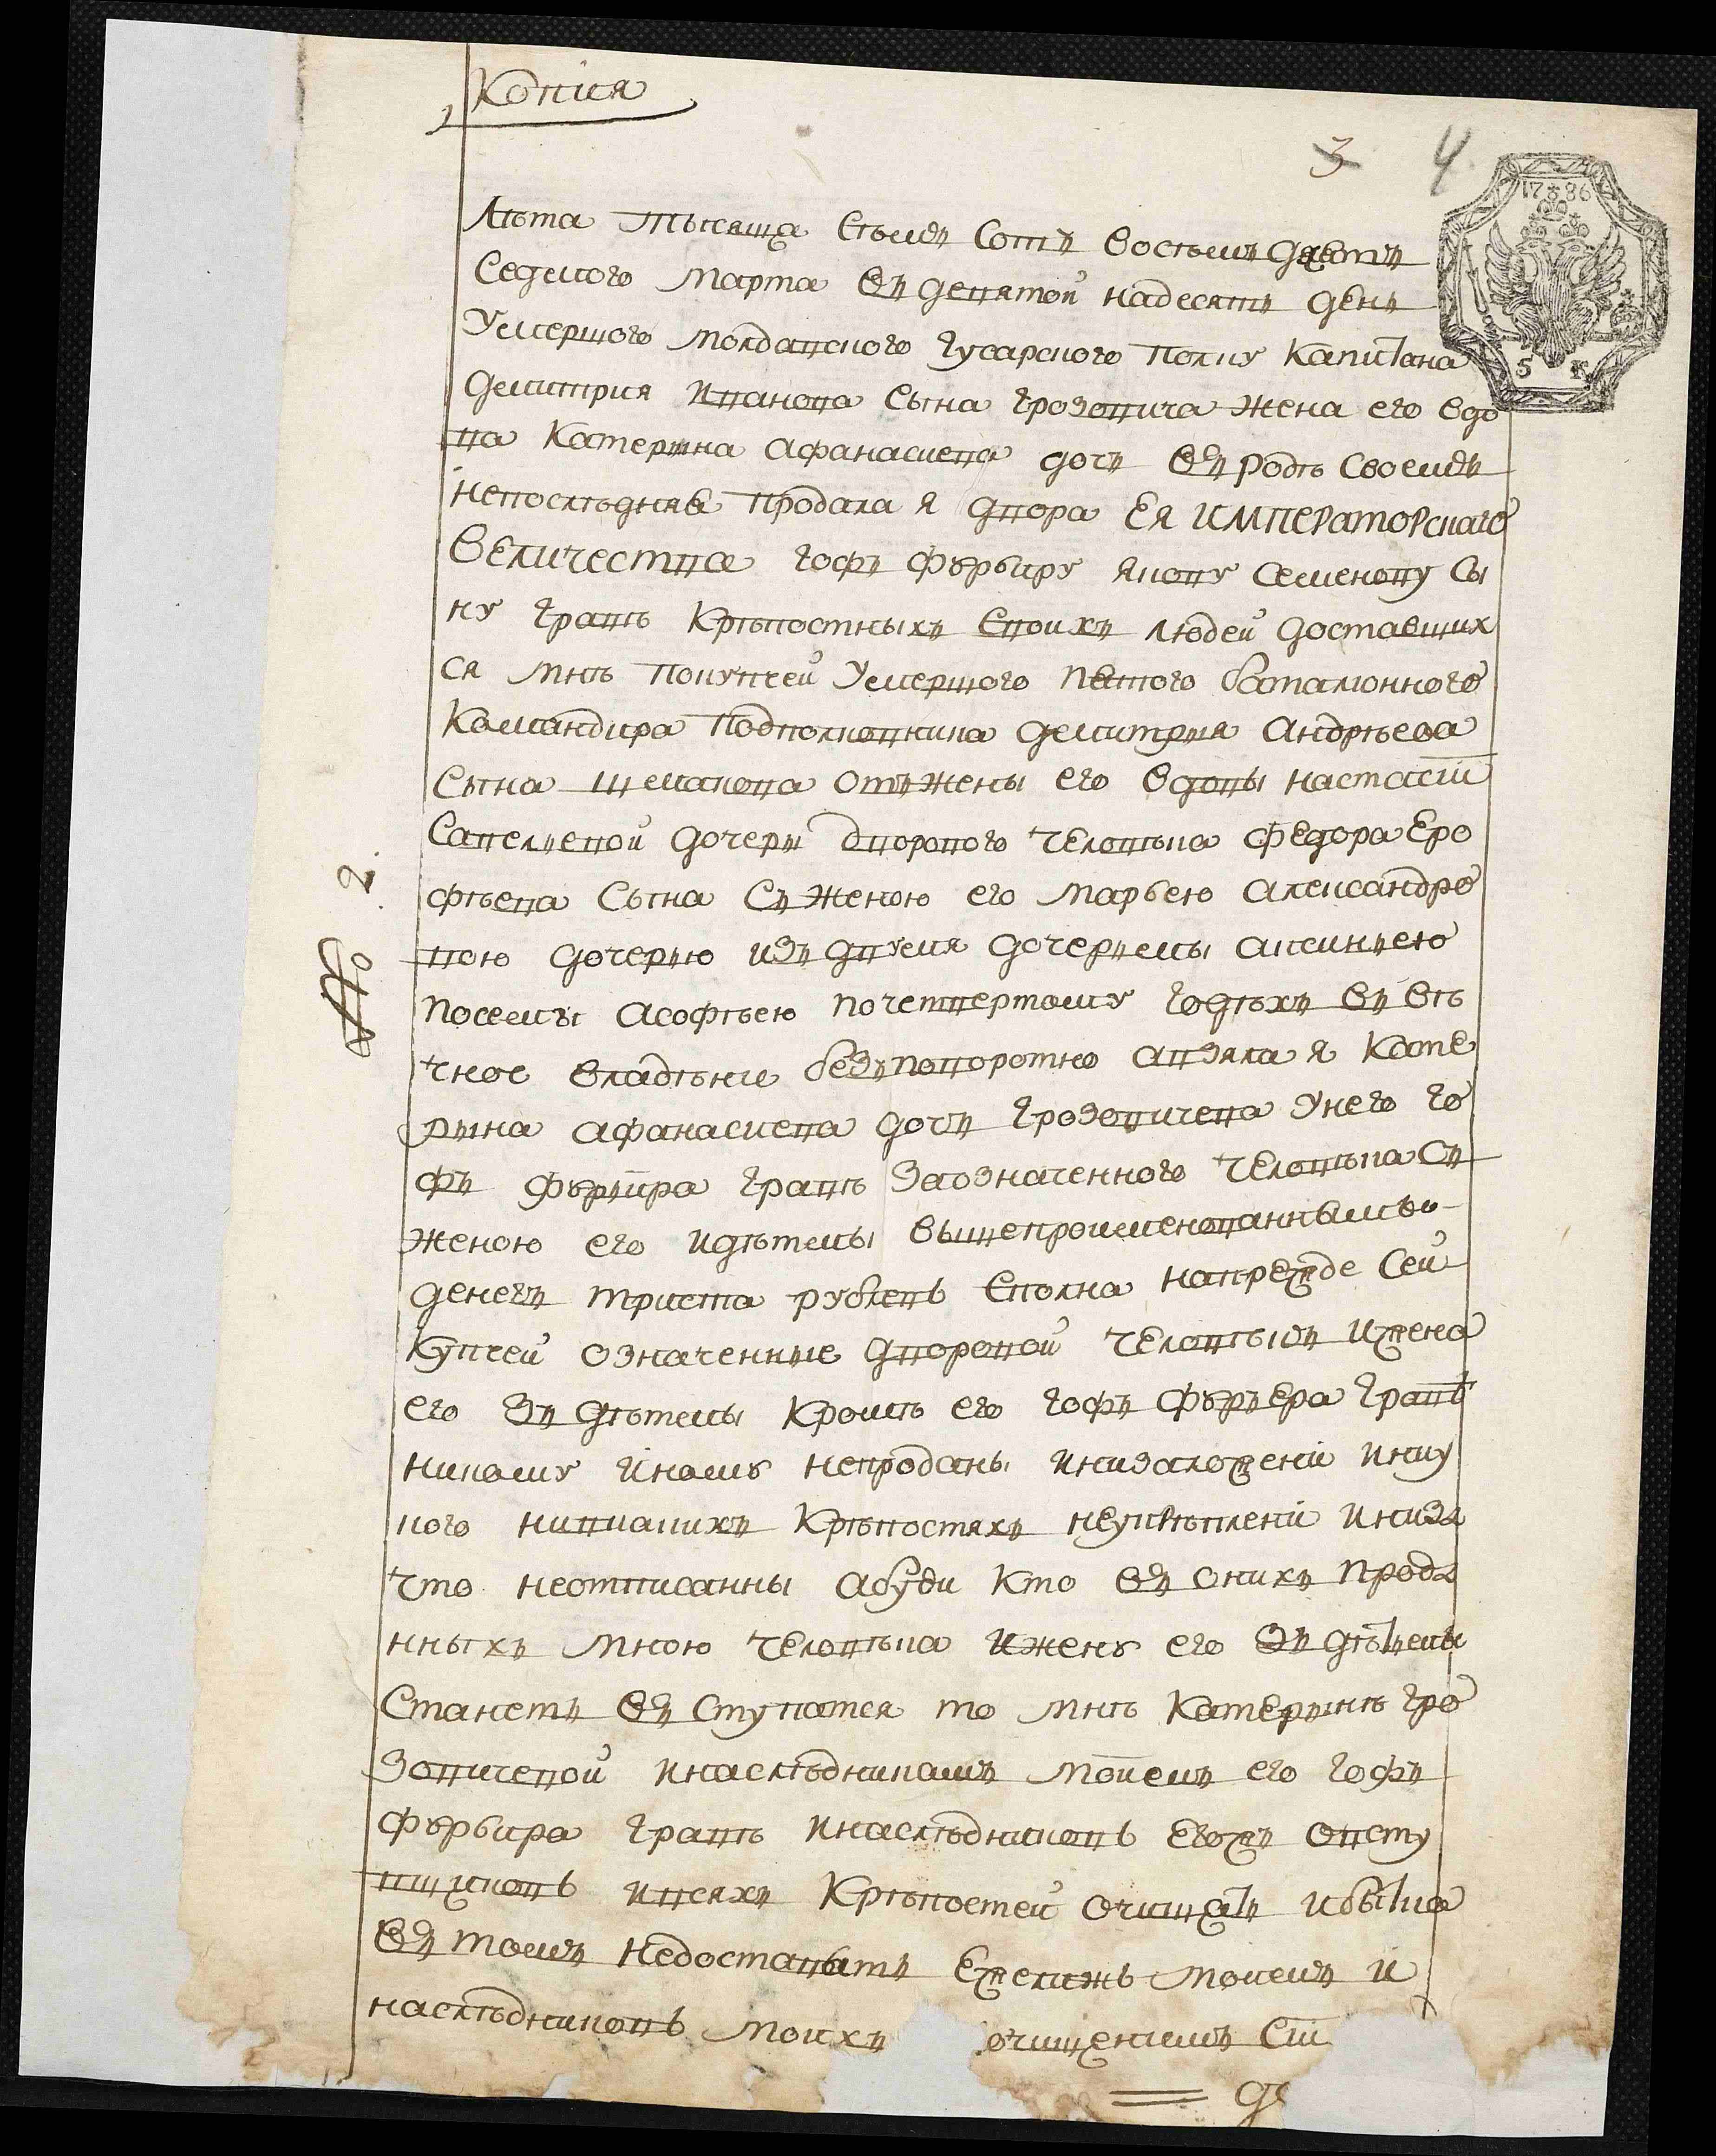 Копия
3 4
1786
5 К
Лѣта тысяща семъ сотъ восемъ десятъ
седмого марта въ девятой надесятъ день
умершого молдавского гусарского полку капитана
Демитрия Иванова сына Грозовича жена его вдо
ва Катерина Афанасиева дочъ въ родѣ своемъ
непослѣдняя продала я двора ЕЯ ИМПЕРАТОРСКАГО
ВЕЛИЧЕСТВА гофъ фърьиру Якову Семенову сы
ну Граве крѣпостныхъ своихъ людей доставших
ся мнѣ покупчей умершого пятого баталионного
командира подполковника Демитрия Андрѣева
сына Шемакова отъ жены его вдовы Настасіи
Савелиевой дочери дворового человѣка Федора Еро
фѣева сына съ женою его Марьею Александро
вою дочерью изъ двумя дочерьмы Аксиньею
поосмы Асофѣею по четвертому годѣхъ въ вѣ
чное владѣние безъповоротно а взяла я Кате
рина Афанасиева дочъ Грозовичева у него го
фъ фърьира Граве за означенного человѣка съ
женою его и дѣтемы вышепроименованнымъ
денегъ триста рублевь сполна напрежде сей
купчей означенные дворовой человѣкъ и жена
его зъ дѣтемы кромѣ его гофъ фърьера Граве
никому иному непроданы и низаложени и ниу
кого нивкакихъ крѣпостяхъ неукрѣплени и низа
что неотписанны а буди кто въ онихъ прода
нныхъ мною человѣка и жену его зъ дѣтемы
станетъ въступатся то мнѣ Катеринѣ Гро
зовичевой и наслѣдникамъ моїемъ его гофъ
фърьира Граве и наслѣдниковь егожъ от всту
пщиковь и всяхъ крѣпостей очищать и бытко
въ томъ недоставать ежелижь моиемъ и
наслѣдниковь моихъ очищениемъ сіи
де
№ 2.